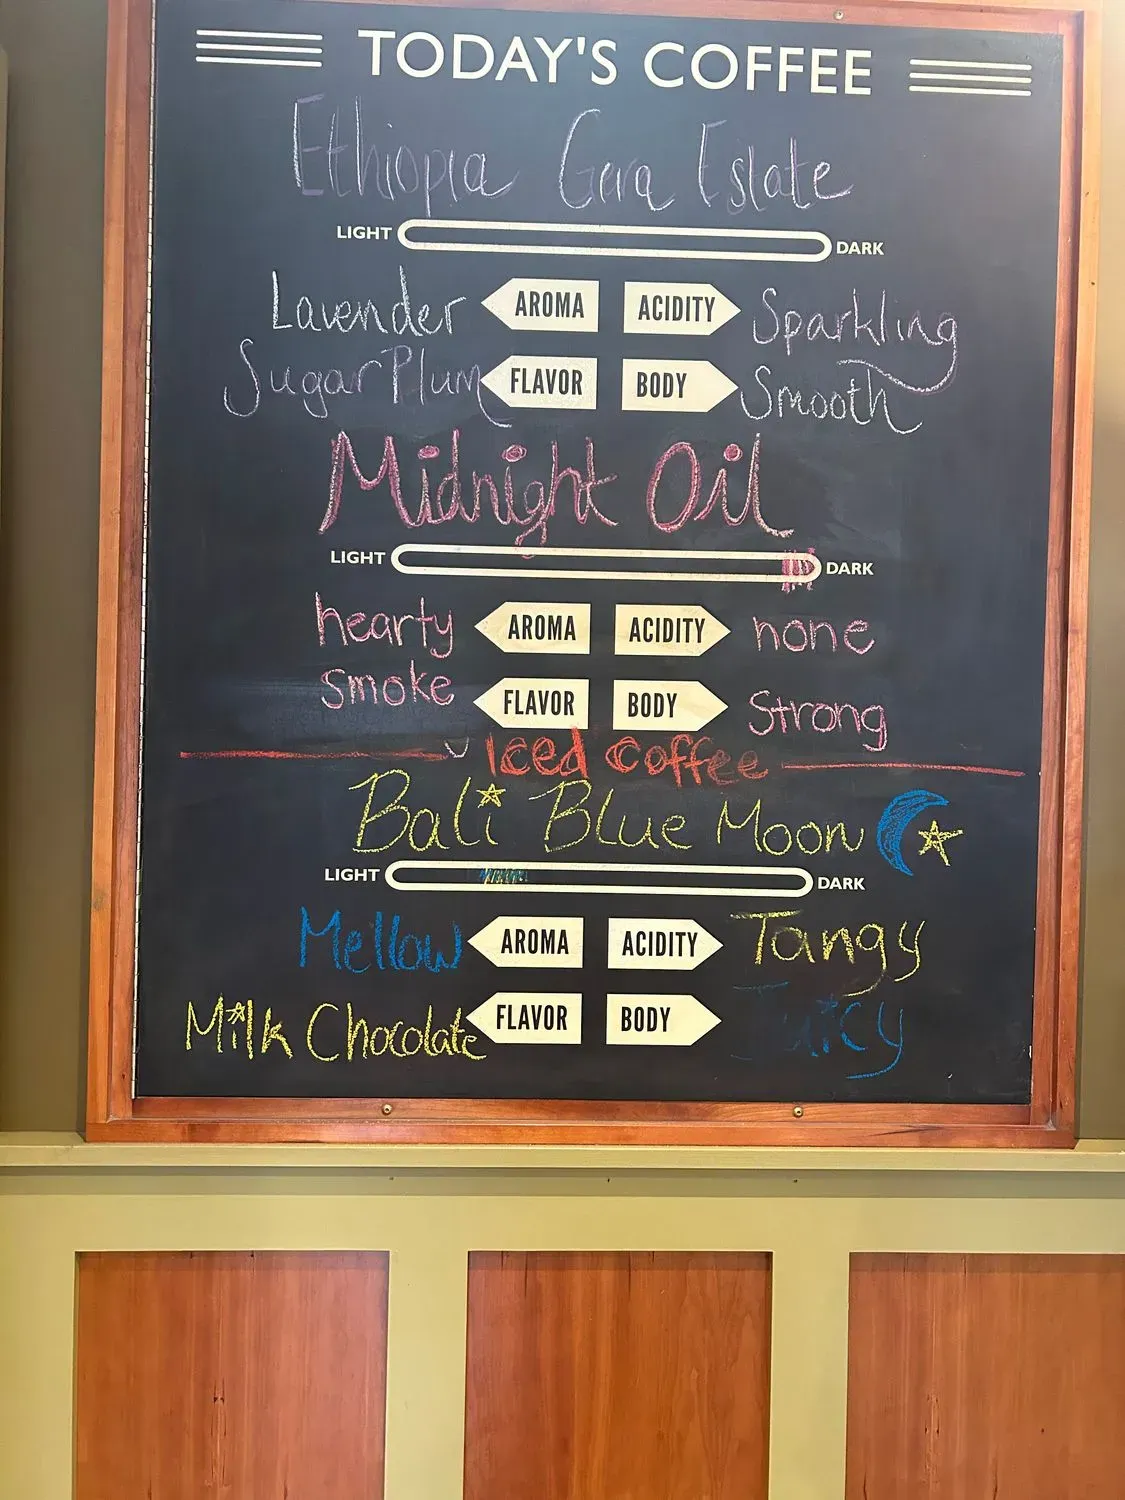 TODAY'S COFFEE
Ethiopia Gera Estate
LIGHT DARK
Lavender AROMA ACIDITY Sparkling
Sugar Plum FLAVOR BODY Smooth
Midnight Oil
LIGHT DARK
hearty AROMA ACIDITY none
smoke FLAVOR BODY Strong
Iced coffee
Bali Blue Moon
LIGHT DARK
Mellow AROMA ACIDITY Tangy
Milk Chocolate FLAVOR BODY Juicy